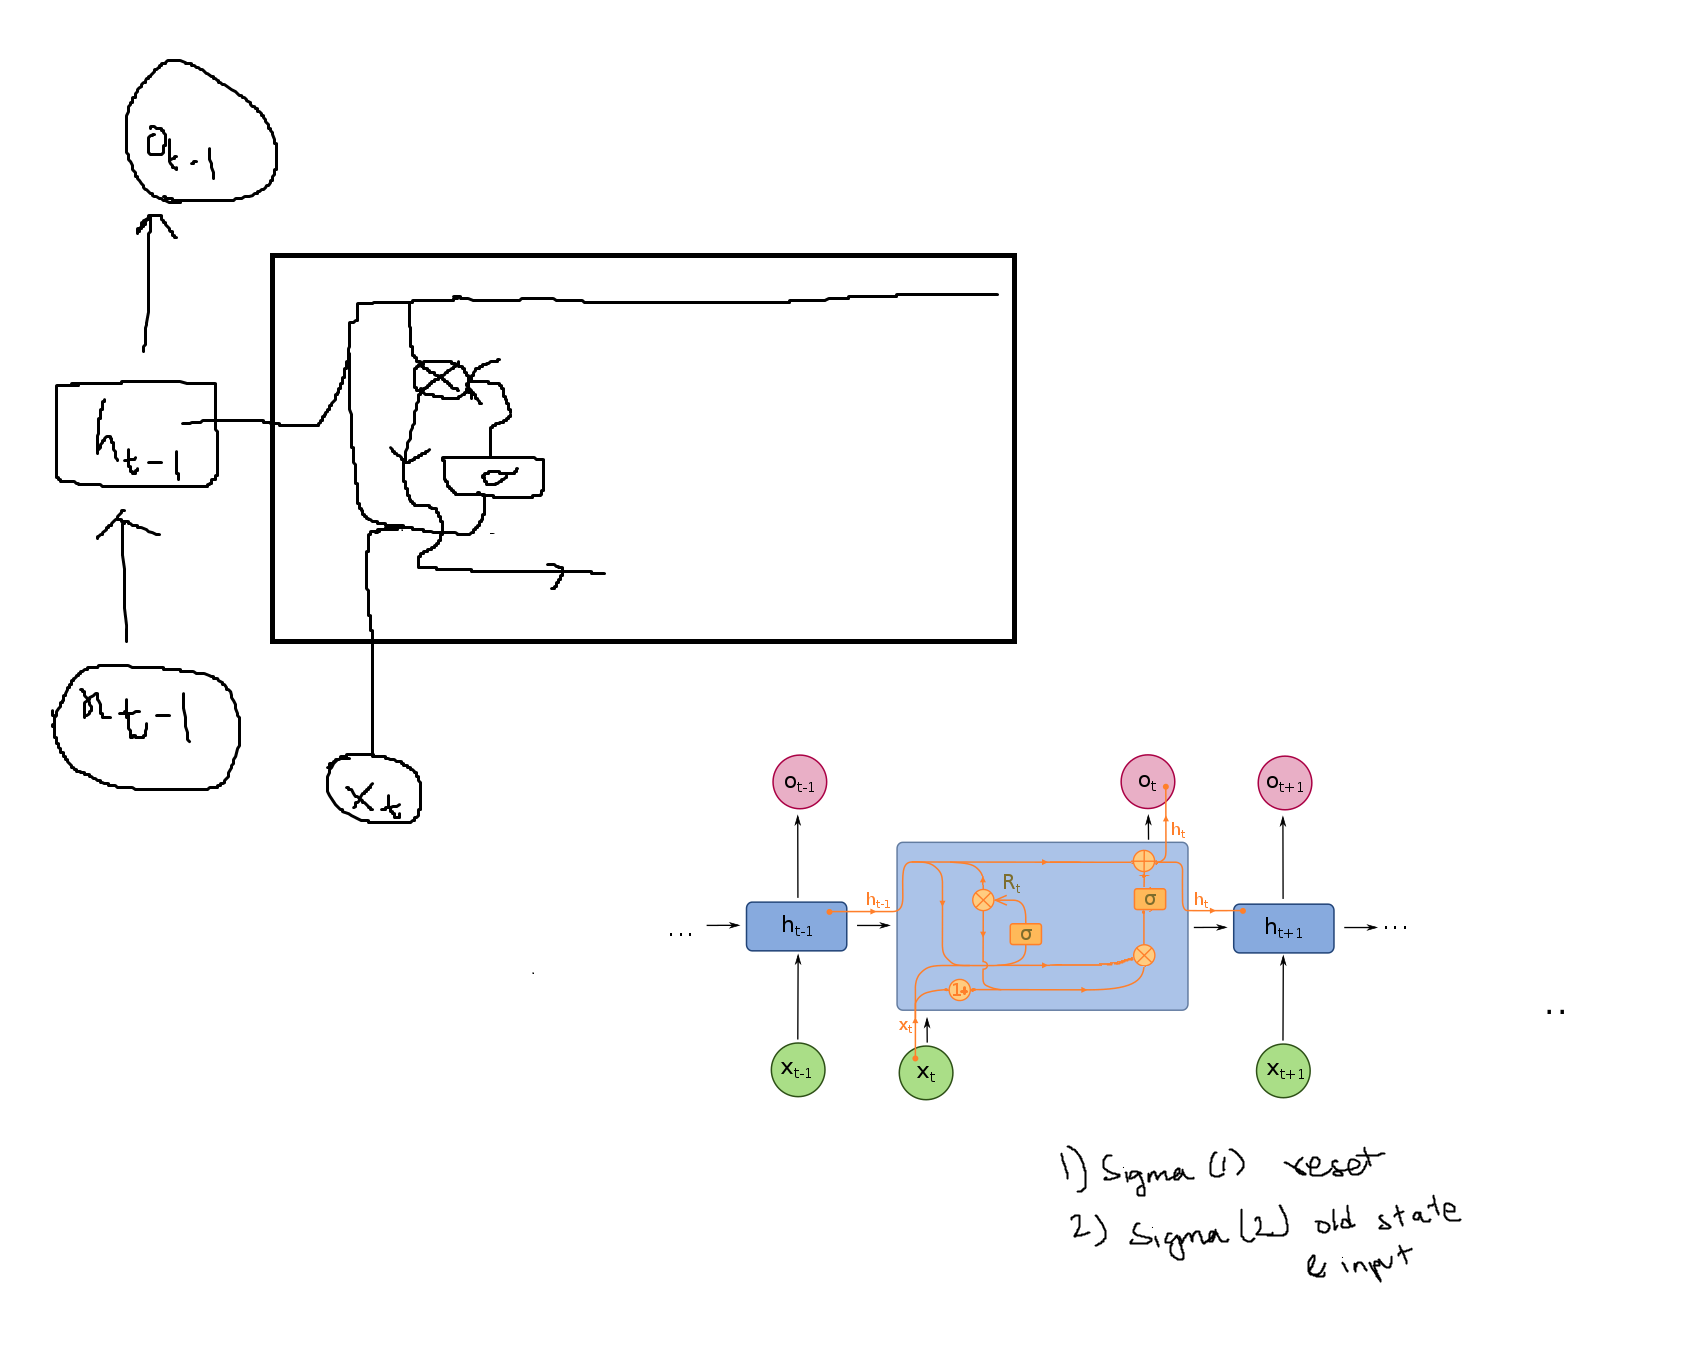 o t-1
h t-1
σ
x t-1
x t
o t-1
o t
o t+1
h t
R t
h t-1
σ
h t
σ
... h t-1
h t+1 ...
1+
x t
x t-1
x t
x t+1
..
1) Sigma (1) reset
2) Sigma (2) old state
& input